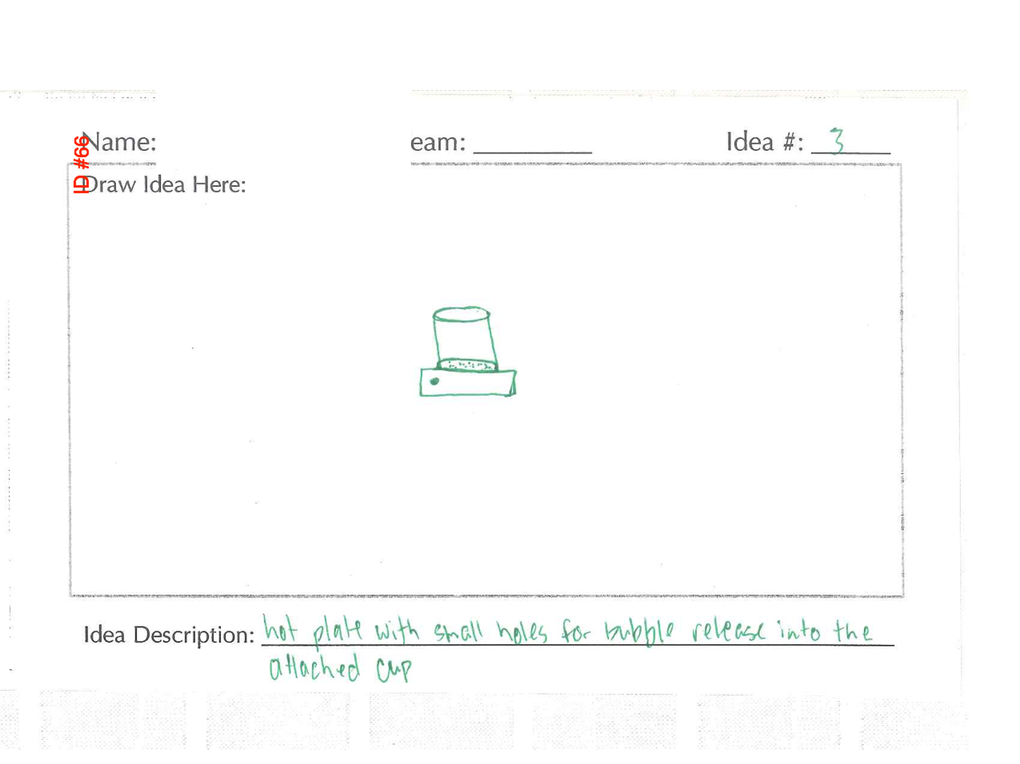 Name: eam: Idea #: 3
ID #66
Draw Idea Here:
Idea Description: hot plate with small holes for bubble release into the
attached cup